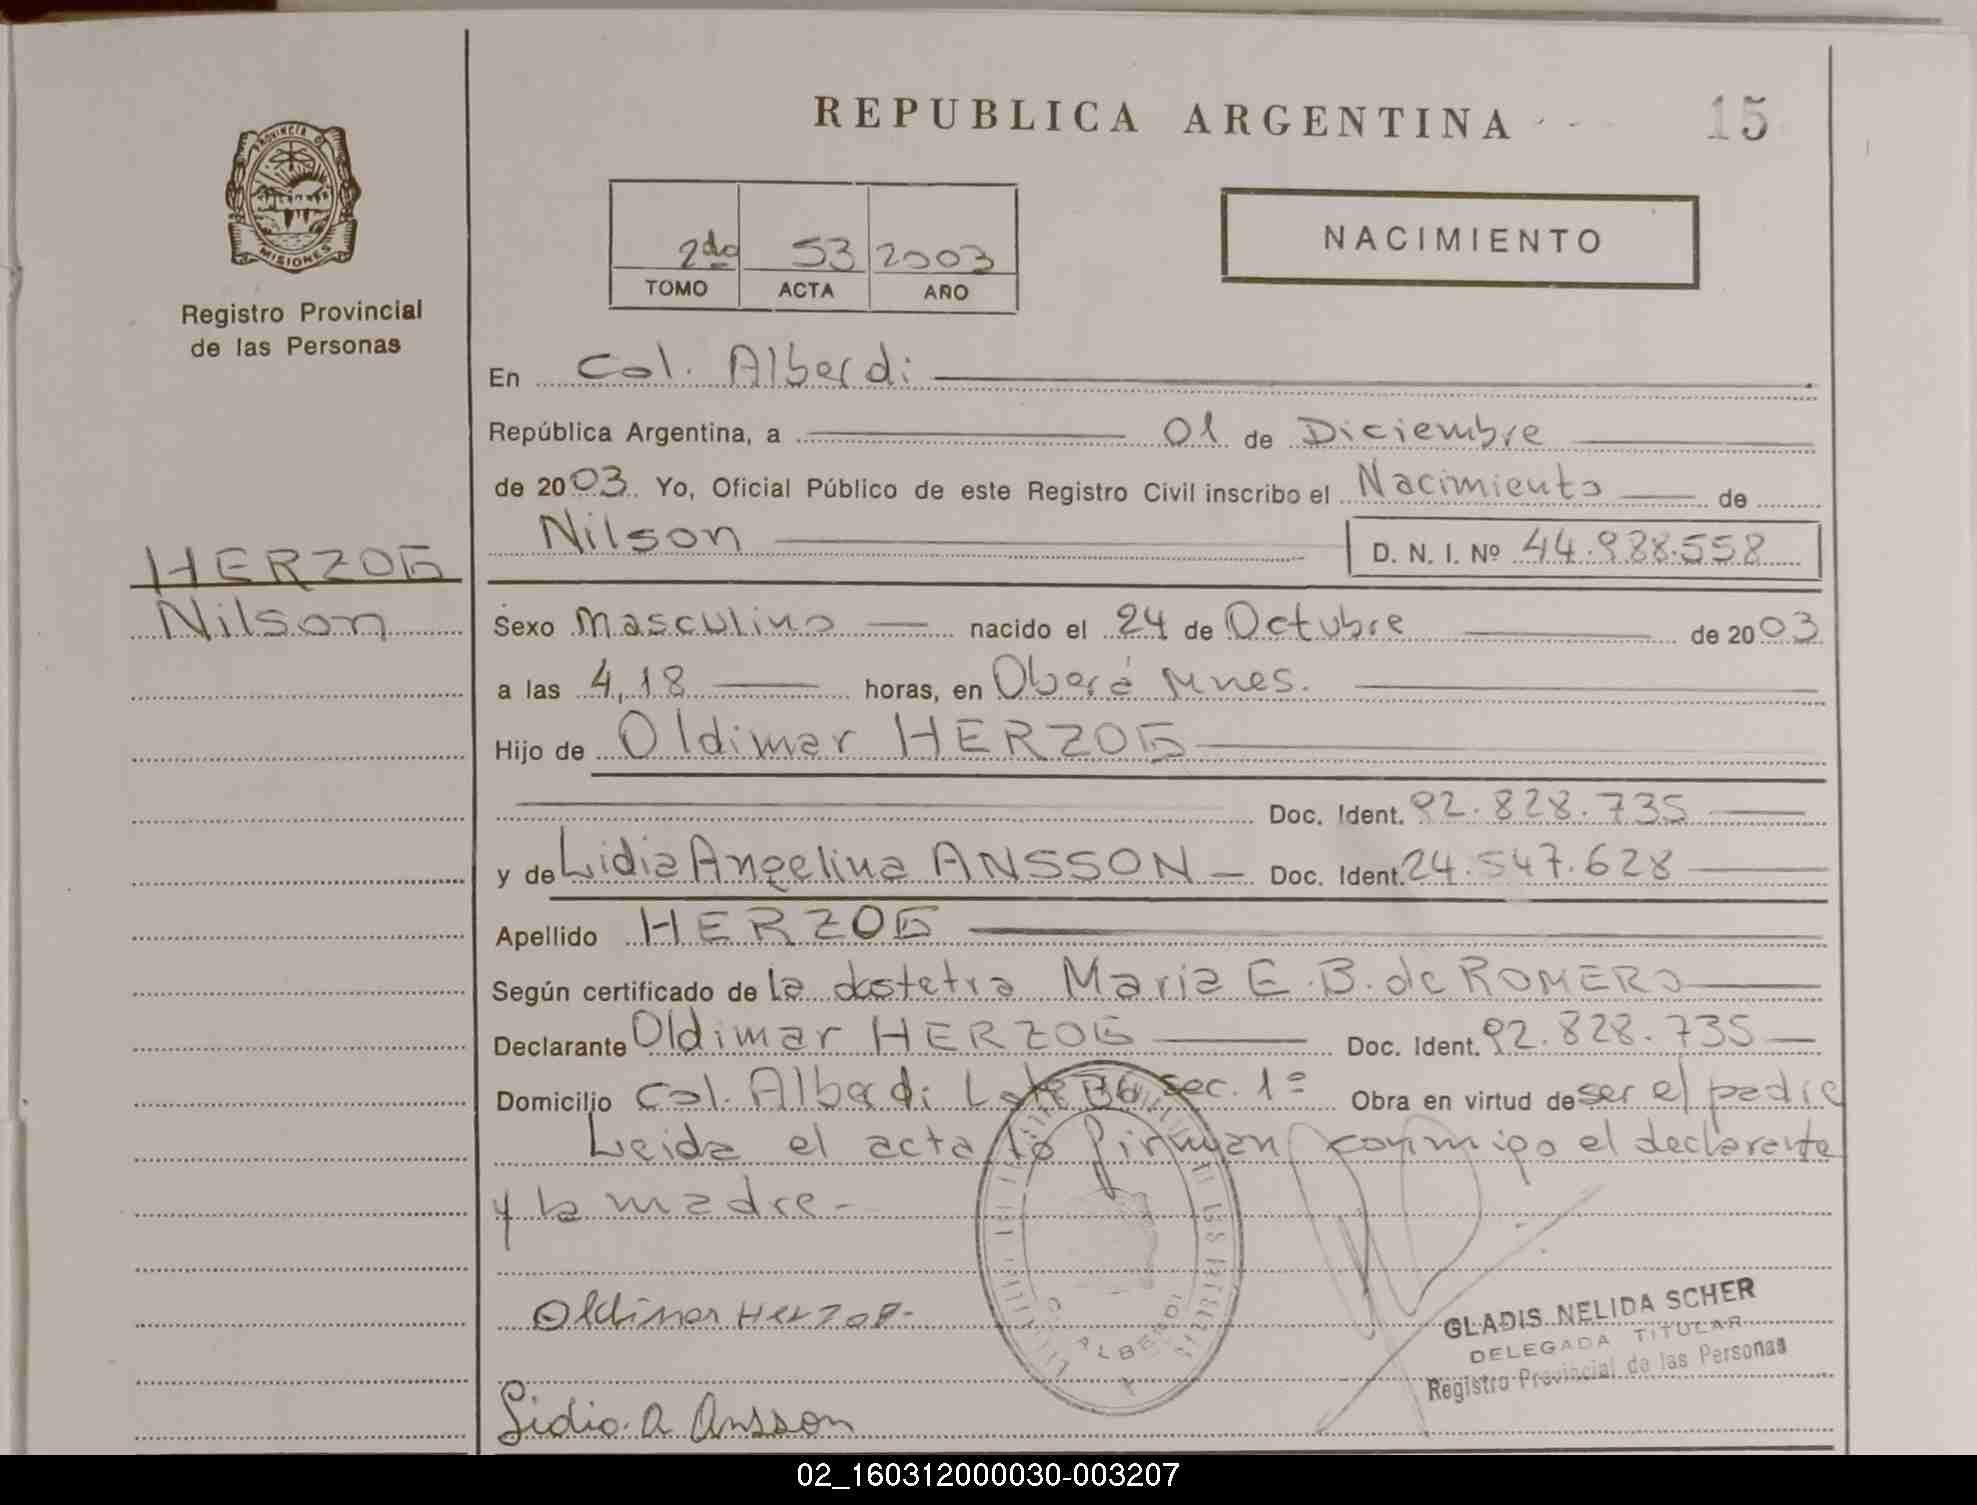 REPUBLICA ARGENTINA
15
PROVINCIA D
MISIONES
Registro Provincial
de las Personas
2do 53 2003
TOMO ACTA AÑO
NACIMIENTO
En Col. Alberdi
República Argentina, a 01 de Diciembre
de 2003. Yo, Oficial Público de este Registro Civil inscribo el Nacimiento de
Nilson D. N. I. Nº 44.988.558
HERZOG
Nilson
Sexo Masculino nacido el 24 de Octubre de 2003
a las 4,18 horas, en Oberá Mnes.
Hijo de Oldimar HERZOG
Doc. Ident. 92.828.735
y de Lidia Angelina ANSSON Doc. Ident. 24.547.628
Apellido HERZOG
Según certificado de la Maria E. B. de ROMERO
Declarante Oldimar HERZOG Doc. Ident. 92.828.735
Domicilio Col. Alberdi Lote sec. 1º Obra en virtud de ser el padre
Leida el acta la firman conmigo el declarante
y la madre.-
Oldimar HERZOG
Lidia. A Ansson
ALBERDI
GLADIS NELIDA SCHER
DELEGADA TITULAR
Registro Provincial de las Personas
02_160312000030-003207